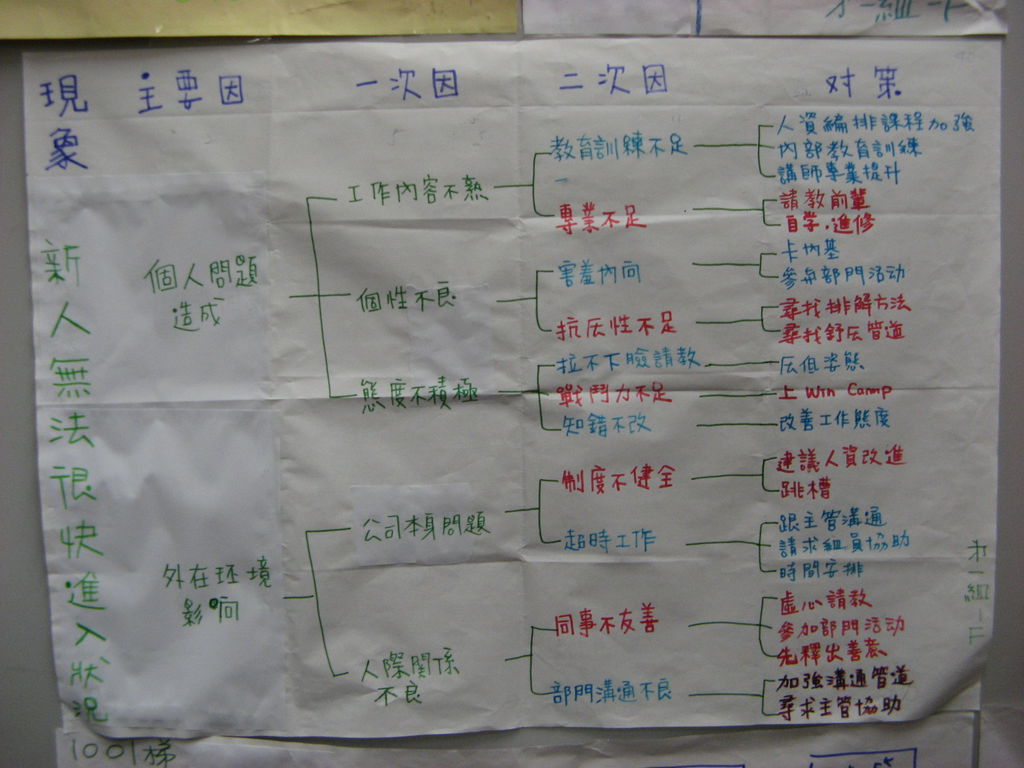 現象 主要因 一次因 二次因 对策
新人無法很快進入狀況
個人問題
造成
工作內容不熟
教育訓練不足
人資編排課程加強
內部教育訓練
講師專業提升
專業不足
請教前輩
自学.進修
個性不良
害羞內向
卡內基
參與部門活动
抗压性不足
尋找排解方法
尋找舒压管道
態度不積極
拉不下臉請教
压低姿態
戰鬥力不足
上 Win Camp
知錯不改
改善工作態度
外在环境
影响
公司本身問題
制度不健全
建議人資改進
跳槽
超時工作
跟主管溝通
請求組員協助
時間安排
人際關係
不良
同事不友善
虛心請教
參加部門活动
先釋出善意
部門溝通不良
加強溝通管道
尋求主管協助
1001梯